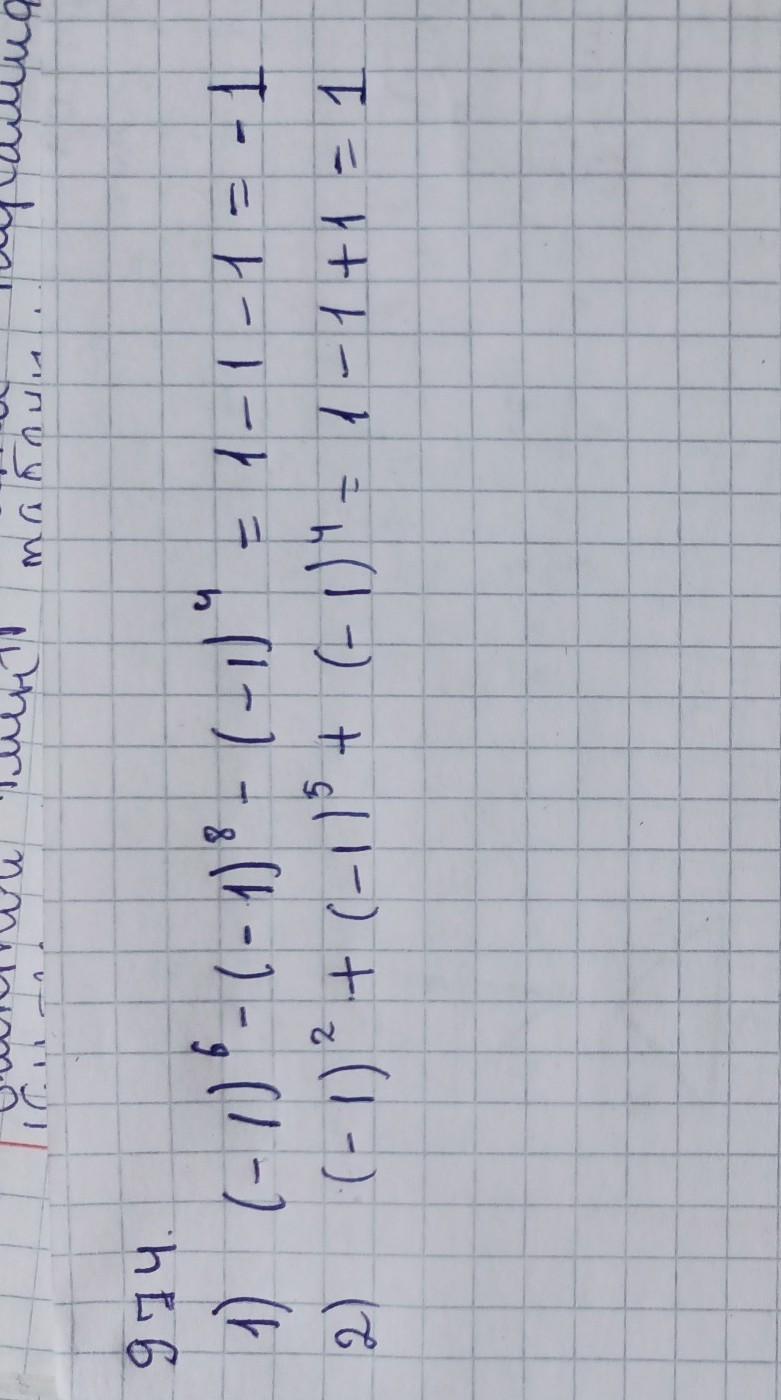 974.
1) (-1)⁶ - (-1)⁸ - (-1)⁴ = 1 - 1 - 1 = - 1
2) (-1)² + (-1)⁵ + (-1)⁴ = 1 - 1 + 1 = 1